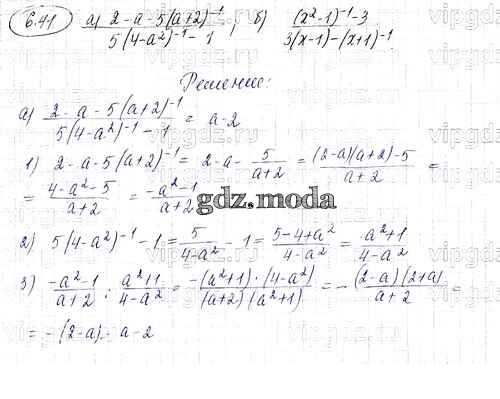 6.41 а) (2-a-5(a+2)^-1)/(5(4-a²)^-1 - 1); б) ((x²-1)^-1-3)/(3(x-1)-(x+1)^-1)
Решение:
а) (2-a-5(a+2)^-1)/(5(4-a²)^-1 - 1) = a-2
1) 2-a-5(a+2)^-1 = 2-a-5/(a+2) = ((2-a)(a+2)-5)/(a+2) =
= (4-a²-5)/(a+2) = (-a²-1)/(a+2)
gdz.moda
2) 5(4-a²)^-1 - 1 = 5/(4-a²) - 1 = (5-4+a²)/(4-a²) = (a²+1)/(4-a²)
3) (-a²-1)/(a+2) : (a²+1)/(4-a²) = (-(a²+1)·(4-a²))/((a+2)(a²+1)) = -((2-a)(2+a))/(a+2) =
= -(2-a) = a-2
vipgdz.ru